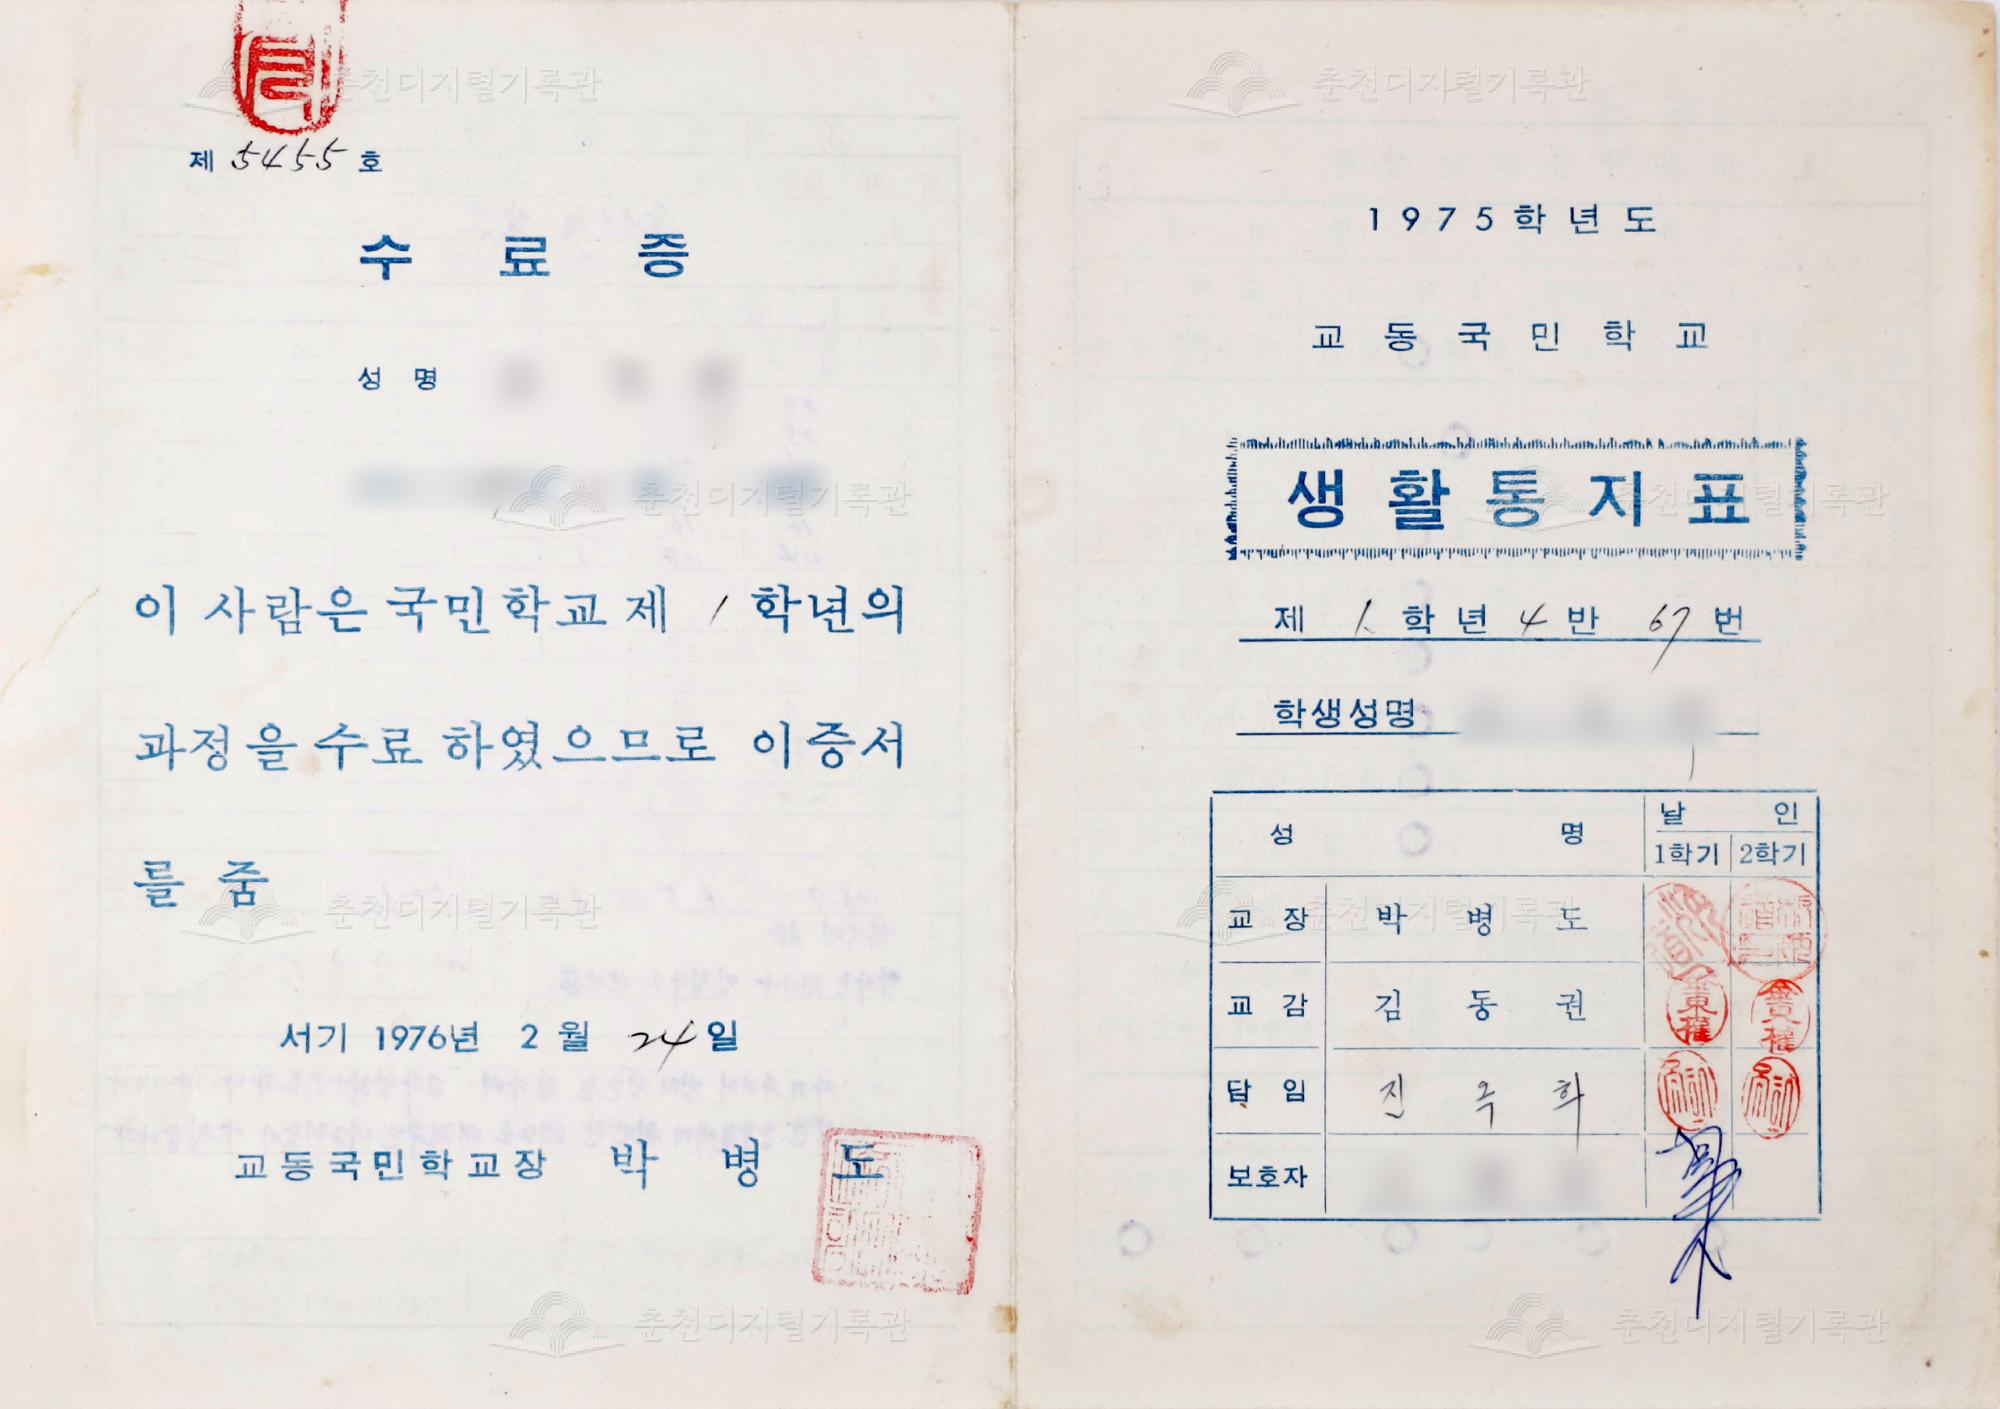 제 5455 호
수 료 증
성 명
이 사람은 국민학교 제 1 학년의
과정을 수료 하였으므로 이증서
를 줌
서기 1976년 2 월 24 일
교동국민학교장 박 병 도
1975학년도
교 동 국 민 학 교
생 활 통 지 표
제 1. 학년 4 반 67 번
학생성명
성 명 날 인
1학기 2학기
교 장 박 병 도
교 감 김 동 권
金東權
담 임 진 옥 화
보호자
춘천디지털기록관
춘천디지털기록관
춘천디지털기록관
춘천디지털기록관
춘천디지털기록관
춘천디지털기록관
춘천디지털기록관
춘천디지털기록관